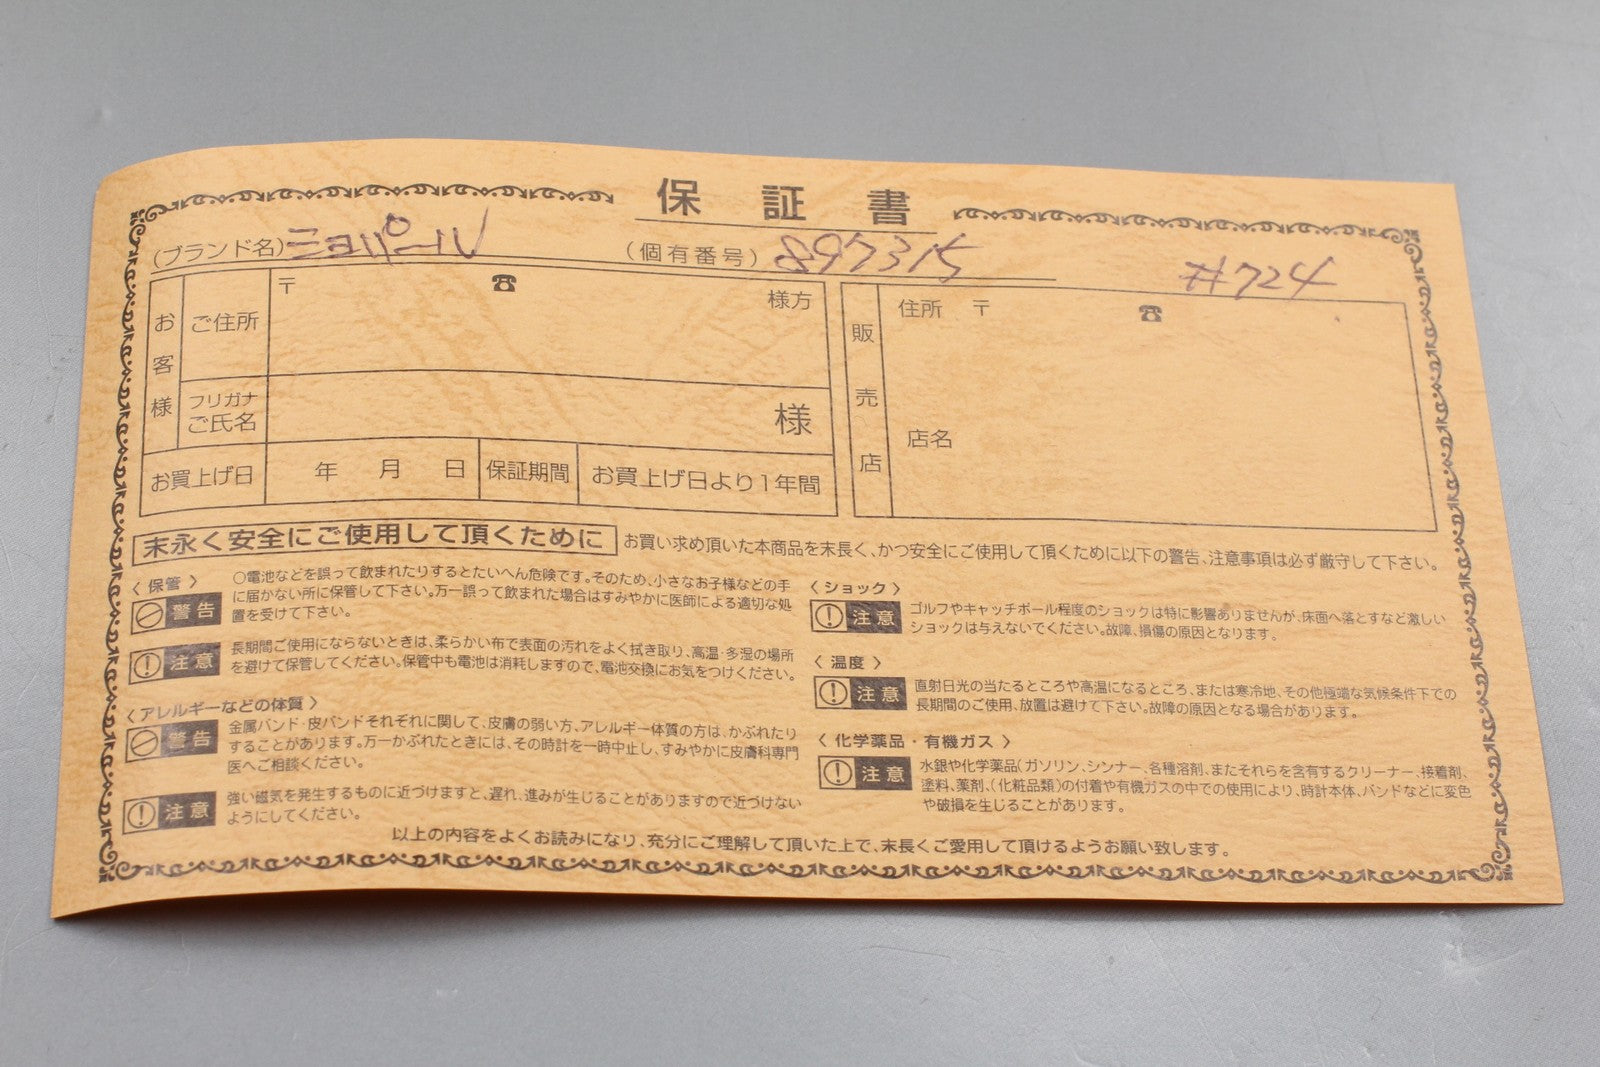 保証書
(ブランド名) ミヨパール (個有番号) 897315 #724
お客様
ご住所
〒 ☎
様方
フリガナ
ご氏名
様
お買上げ日 年 月 日 保証期間 お買上げ日より1年間
販売店
住所 〒 ☎
店名
末永く安全にご使用して頂くために お買い求め頂いた本商品を末長く、かつ安全にご使用して頂くために以下の警告、注意事項は必ず厳守して下さい。
〈 保管 〉
警告
○電池などを誤って飲まれたりするとたいへん危険です。そのため、小さなお子様などの手
に届かない所に保管して下さい。万一誤って飲まれた場合はすみやかに医師による適切な処
置を受けて下さい。
注意
長期間ご使用にならないときは、柔らかい布で表面の汚れをよく拭き取り、高温・多湿の場所
を避けて保管してください。保管中も電池は消耗しますので、電池交換にお気をつけください。
〈 アレルギーなどの体質 〉
警告
金属バンド・皮バンドそれぞれに関して、皮膚の弱い方、アレルギー体質の方は、かぶれたり
することがあります。万一かぶれたときには、その時計を一時中止し、すみやかに皮膚科専門
医へご相談ください。
注意
強い磁気を発生するものに近づけますと、遅れ、進みが生じることがありますので近づけない
ようにしてください。
〈 ショック 〉
注意
ゴルフやキャッチボール程度のショックは特に影響ありませんが、床面へ落とすなど激しい
ショックは与えないでください。故障、損傷の原因となります。
〈 温度 〉
注意
直射日光の当たるところや高温になるところ、または寒冷地、その他極端な気候条件下での
長期間のご使用、放置は避けて下さい。故障の原因となる場合があります。
〈 化学薬品・有機ガス 〉
注意
水銀や化学薬品(ガソリン、シンナー、各種溶剤、またそれらを含有するクリーナー、接着剤、
塗料、薬剤、(化粧品類)の付着や有機ガスの中での使用により、時計本体、バンドなどに変色
や破損を生じることがあります。
以上の内容をよくお読みになり、充分にご理解して頂いた上で、末長くご愛用して頂けるようお願い致します。